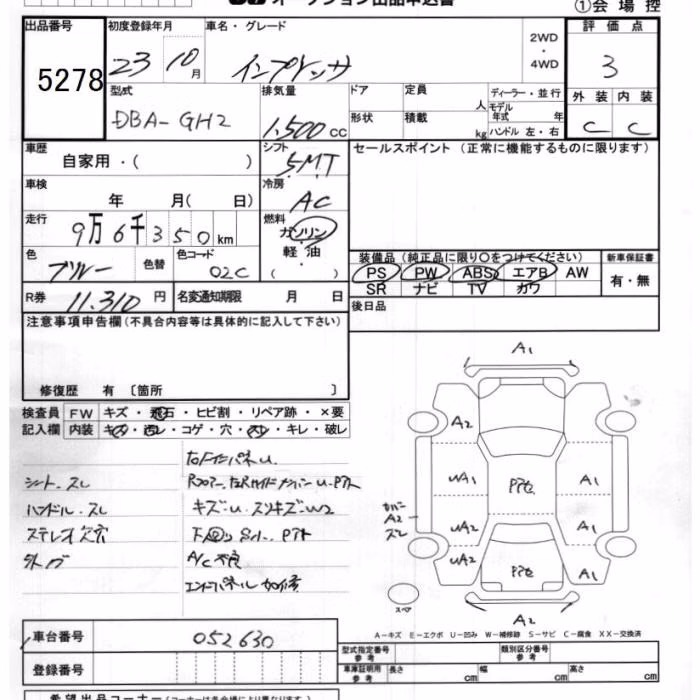 オークション出品申込書
①会場控
出品番号
5278
初度登録年月
23 10月
車名・グレード
インプレッサ
2WD
・
4WD
評価点
3
型式
DBA-GH2
排気量
1,500 cc
ドア
形状
定員
人
積載
kg
ディーラー・並行
モデル年式 年
ハンドル 左・右
外装 内装
C C
車歴
自家用・( )
シフト
5MT
セールスポイント (正常に機能するものに限ります)
車検
年 月( 日)
冷房
AC
走行
9万6千350km
燃料
ガソリン
・
軽油
( )
色
ブルー
色替
色コード
02C
装備品 (純正品に限り〇をつけてください)
PS PW ABS エアB AW
SR ナビ TV カワ
新車保証書
有・無
R券 11,310円
名変通知期限 月 日
後日品
注意事項申告欄 (不具合内容等は具体的に記入して下さい)
修復歴 有 〔箇所 〕
検査員
記入欄
FW キズ・飛石・ヒビ割・リペア跡・×要
内装 キズ・汚レ・コゲ・穴・スレ・キレ・破レ
シート、スレ
ハンドル、スレ
ステレオ欠品
キズ・U スリキズ・W2
A/C不良
A1
A2
UA1
A1
UA2
A1
UA2
A1
カバー
A2
スレ
スペア
A2
A-キズ E-エクボ U-凹み W-補修跡 S-サビ C-腐食 XX-交換済
車台番号
052630
登録番号
型式指定番号
参考
類別区分番号
参考
車庫証明用
参考
長さ cm
幅 cm
高さ cm
希望出品コーナー